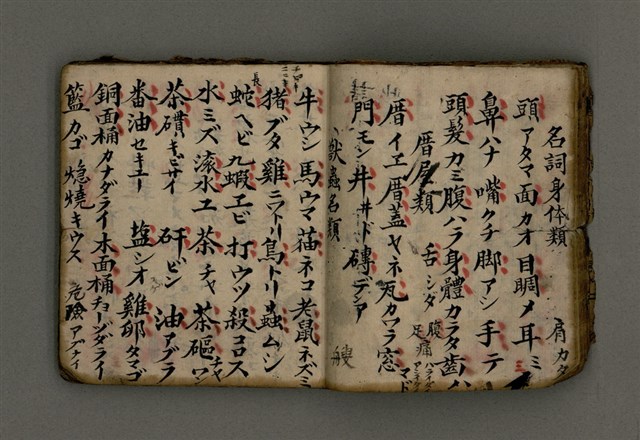 名詞身体類 肩カタ
頭アタマ 面カオ 目睭メ 耳ミ
鼻ハナ 嘴クチ 脚アシ 手テ
頭髮カミ 腹ハラ 身體カラタ 齒ハ
厝屋類 舌シタ 腹 足痛
厝イヱ 厝蓋ヤネ 瓦カワラ 窓マド
門モン 井井ド 磚
獸蟲名類 艘
牛ウシ 馬ウマ 猫ネコ 老鼠ネズミ
猪ブタ 雞ニワトリ 鳥トリ 蟲ムシ
長
蛇ヘビ 蝦エビ 打ウツ 殺コロス
水ミズ 滚水ユ 茶チャ 茶甌チャワン
茶礸キビサイ 矸ビン 油アブラ
番油セキユー 塩シオ 雞卵タマゴ
銅面桶カナダライ 木面桶チョーヅダライ
籃カゴ 燒キウス 危險アブナイ